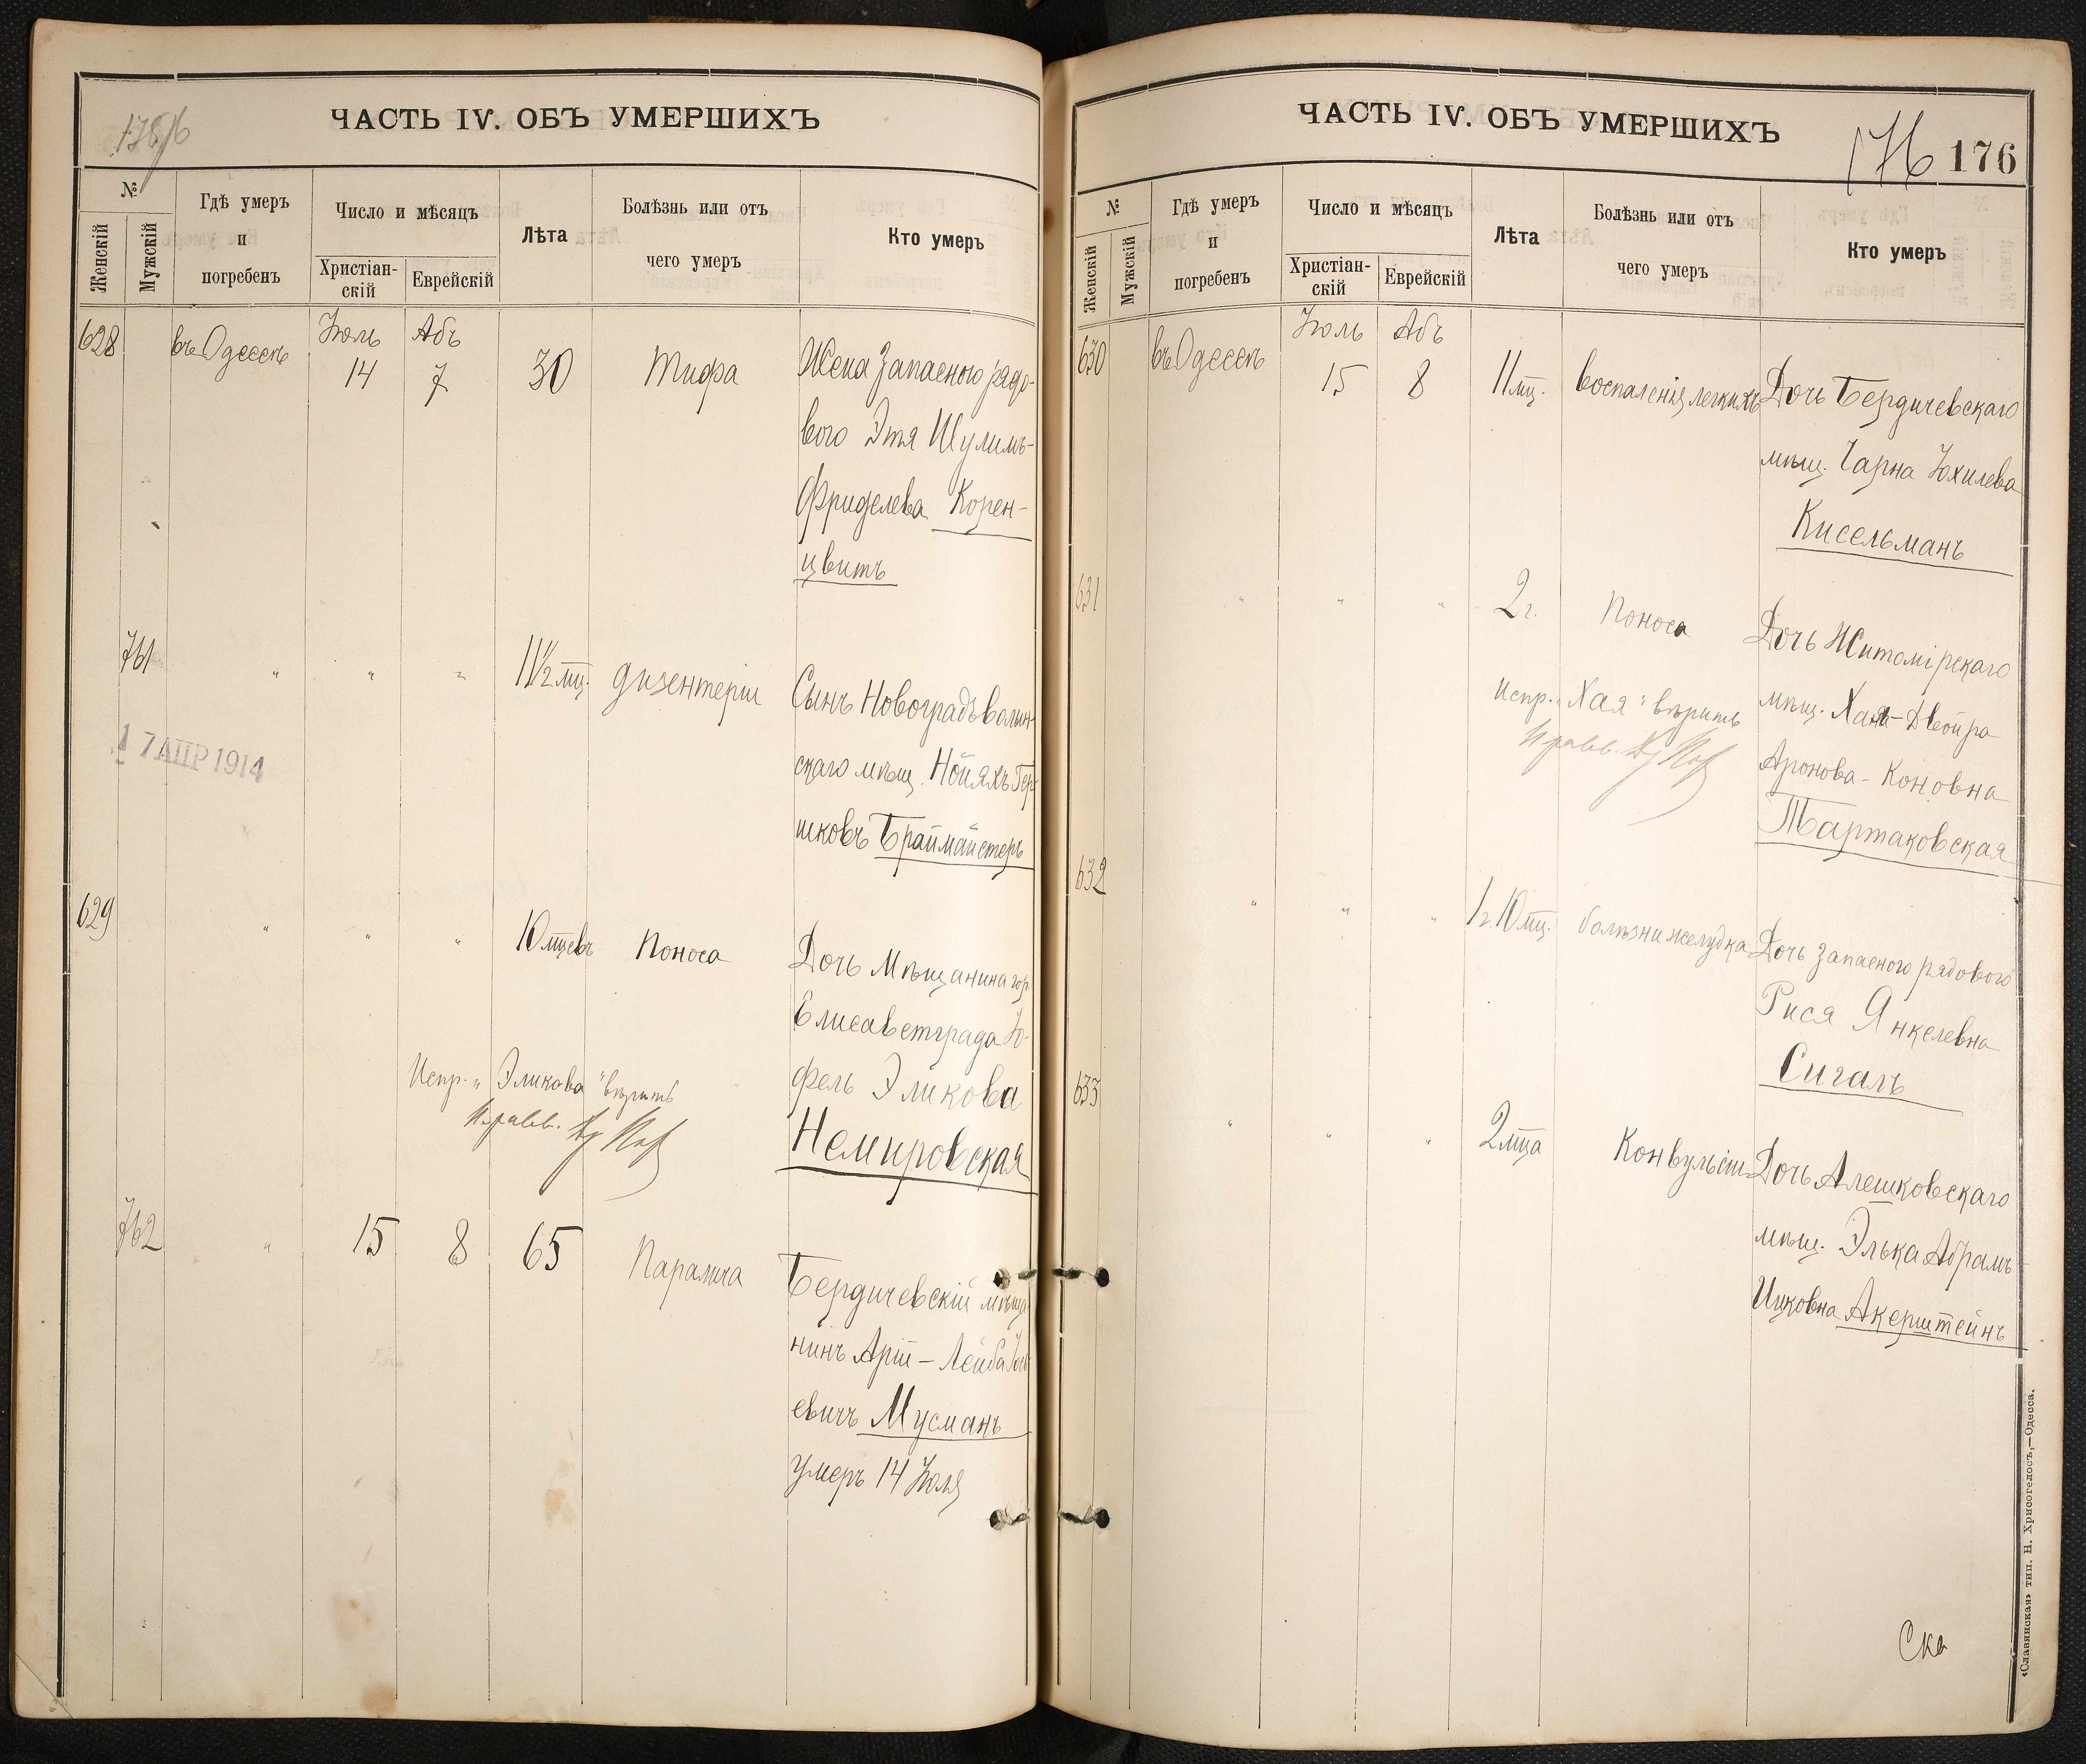 ЧАСТЬ IV. ОБЪ УМЕРШИХЪ
№
Женскій
Мужскій
Гдѣ умеръ
и
погребенъ
Число и мѣсяцъ
Христіан-
скій
Еврейскій
Лѣта
Болѣзнь или отъ
чего умеръ
Кто умеръ
628 въ Одессѣ Іюль 14 Абъ 7 30 Тифа Жена Запасного рядо-
вого Этя Шулимъ-
Фриделева Корен-
цвитъ
761 " " " 11 1/2 мц. дизентеріи Сынъ Новоградъволын-
скаго мѣщ. Нойяхъ Гер-
шковъ Браймайстеръ
17 АПР 1914
629 " " " 10 мцевъ Поноса Дочь Мѣщанина гор.
Елисаветграда Ю-
фель Эликова
Немировская
Испр. "Эликова" вѣрить
762 " 15 8 65 Паралича Бердичевскій мѣща-
нинъ Арій-Лейба
евичъ Мусманъ
умеръ 14 Іюля
ЧАСТЬ IV. ОБЪ УМЕРШИХЪ
176 176
№
Женскій
Мужскій
Гдѣ умеръ
и
погребенъ
Число и мѣсяцъ
Христіан-
скій
Еврейскій
Лѣта
Болѣзнь или отъ
чего умеръ
Кто умеръ
630 въ Одессѣ Іюль 15 Абъ 8 11 мц. Воспаленія легкихъ Дочь Бердичевскаго
мѣщ. Чарна Юхилева
Кисельманъ
631 " " " 2 г. Поноса Дочь Житомірскаго
мѣщ. Хая-Двойра
Аронова-Коновна
Тартаковская
Испр. "Хая" вѣрить
632 " " " 1 г. 10 мц. болѣзни желудка Дочь запасного рядового
Рися Янкелевна
Сигалъ
633 " " " 2 мца Конвульсіи Дочь Алешковскаго
мѣщ. Элька Абрамъ-
Ицковна Акерштейнъ
Ска
«Славянская» тип. Н. Хрисогелосъ,—Одесса.